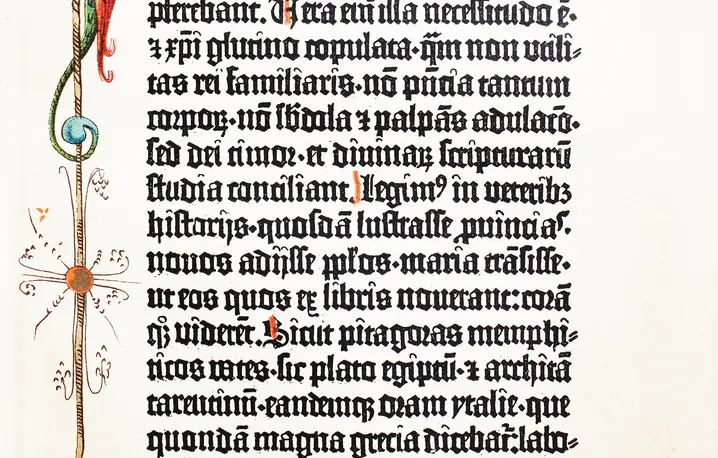 pferebant. Vera eni͂ illa necessitudo e͂·
⁊ xp̄i glutino copulata·q̄m non utili⸗
tas rei familiaris·nō pn̄tia tantum
corpoꝝ·nō sb̓dola ⁊ palpās adulatō·
sed dei timor·et diuinaꝝ scripturarū
studia conciliant. Legimꝰ in veteribꝫ
historijs·quosdā lustrasse ꝓuincias·
nouos adijsse pp̄los·maria trāsisse·
ut eos quos ex libris nouerant:corā
qꝫ viderēt. Sicut pitagoras memphi⸗
ticos vates·sic plato egiptū·⁊ architā
tarentinū·eandemqꝫ oram ytalie·que
quondā magna grecia dicebat̄:labo⸗